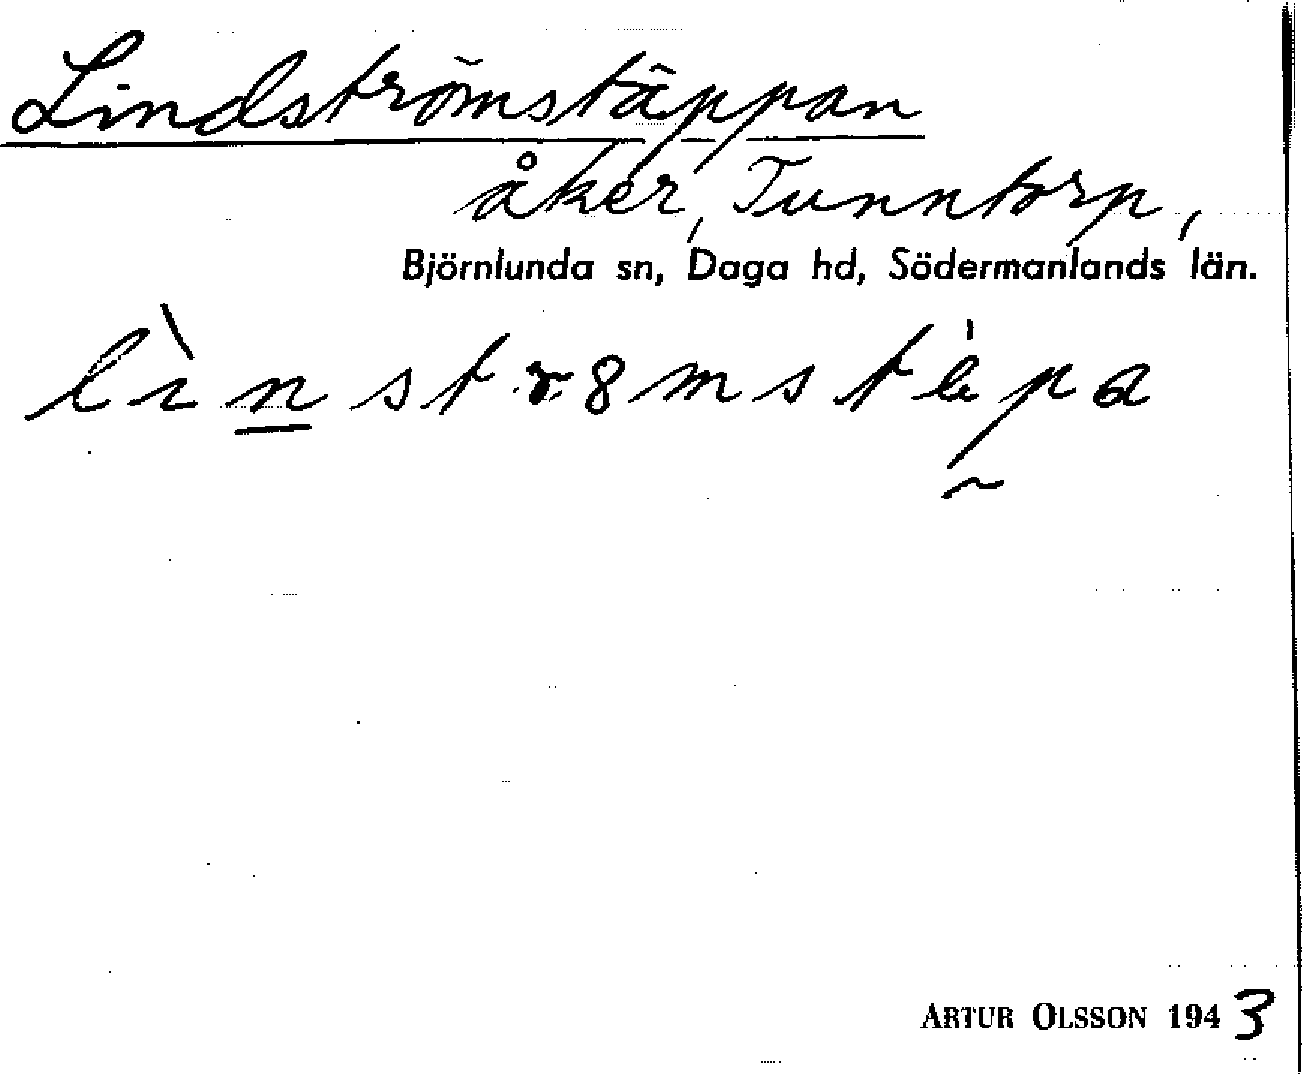 Lindströmstäppan
åker, Tunntorp,
Björnlunda sn, Daga hd, Södermanlands län.
lìnstr8mstèpa
ARTUR OLSSON 1943